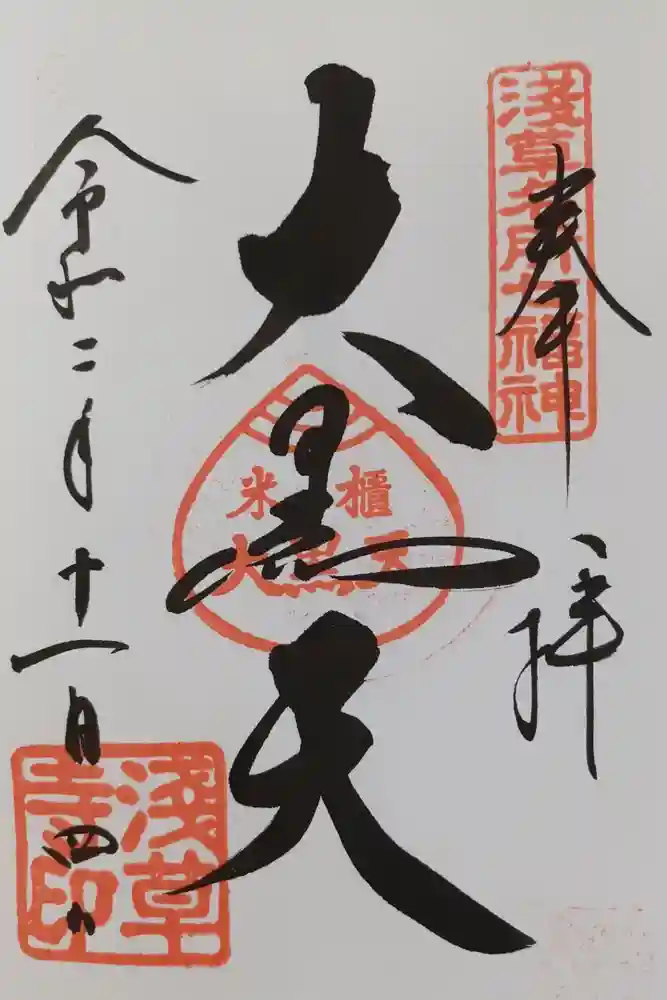 奉拝
淺草名所七福神
大黒天
米櫃
大黒天
令和二年十一月四日
淺草
寺印